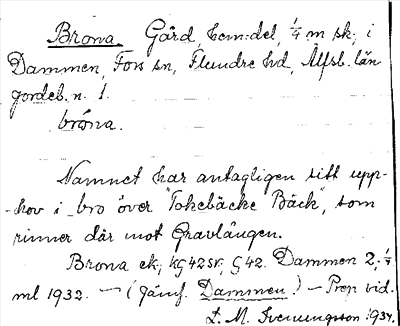 Brona. Gård, hem:del, ¼ m sk; i
Dammen, Fors sn, Flundre hd, Älfsb. län
jordeb. n. 1.
bróna.
Namnet har antagligen sitt upp-
-hov i bro över "Tokebäcke Bäck", som
rinner där mot Gravlången.
Brona ek; KG42SK, G42. Dammen 2, ¼
ml 1932. — (Jämf. Dammen.) — Prep. vid.
L. M. Svenungsson. 1934.